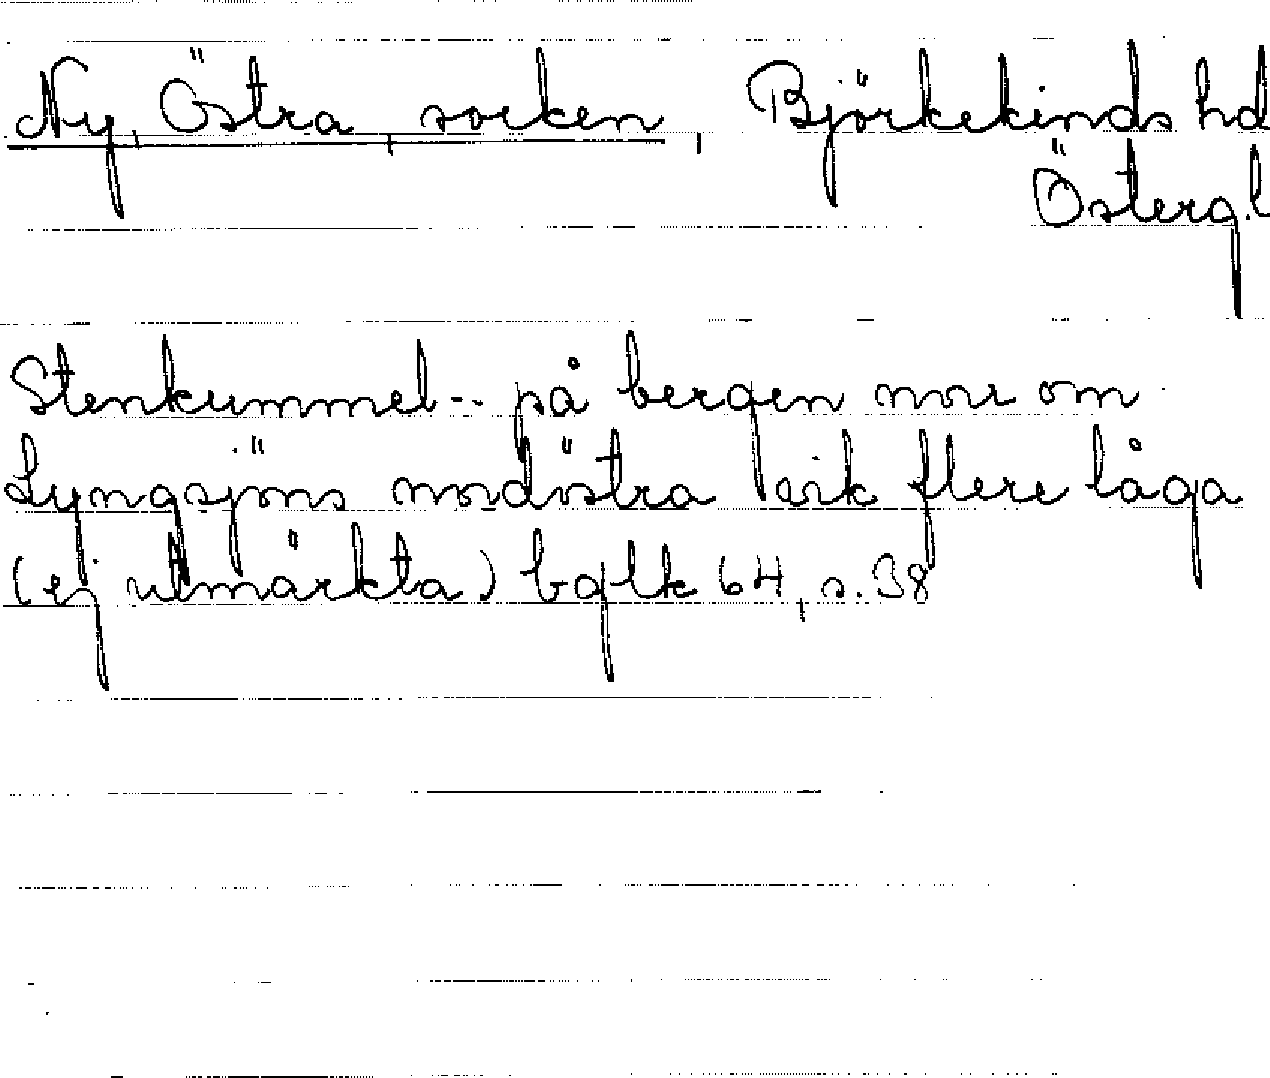 Ny, Östra, socken, Björkekinds hd
Österg.l
Stenkummel-- på bergen norr om
Lyngsjöns nordöstra vik flere låga
(ej utmärkta) bglk 64, s. 38